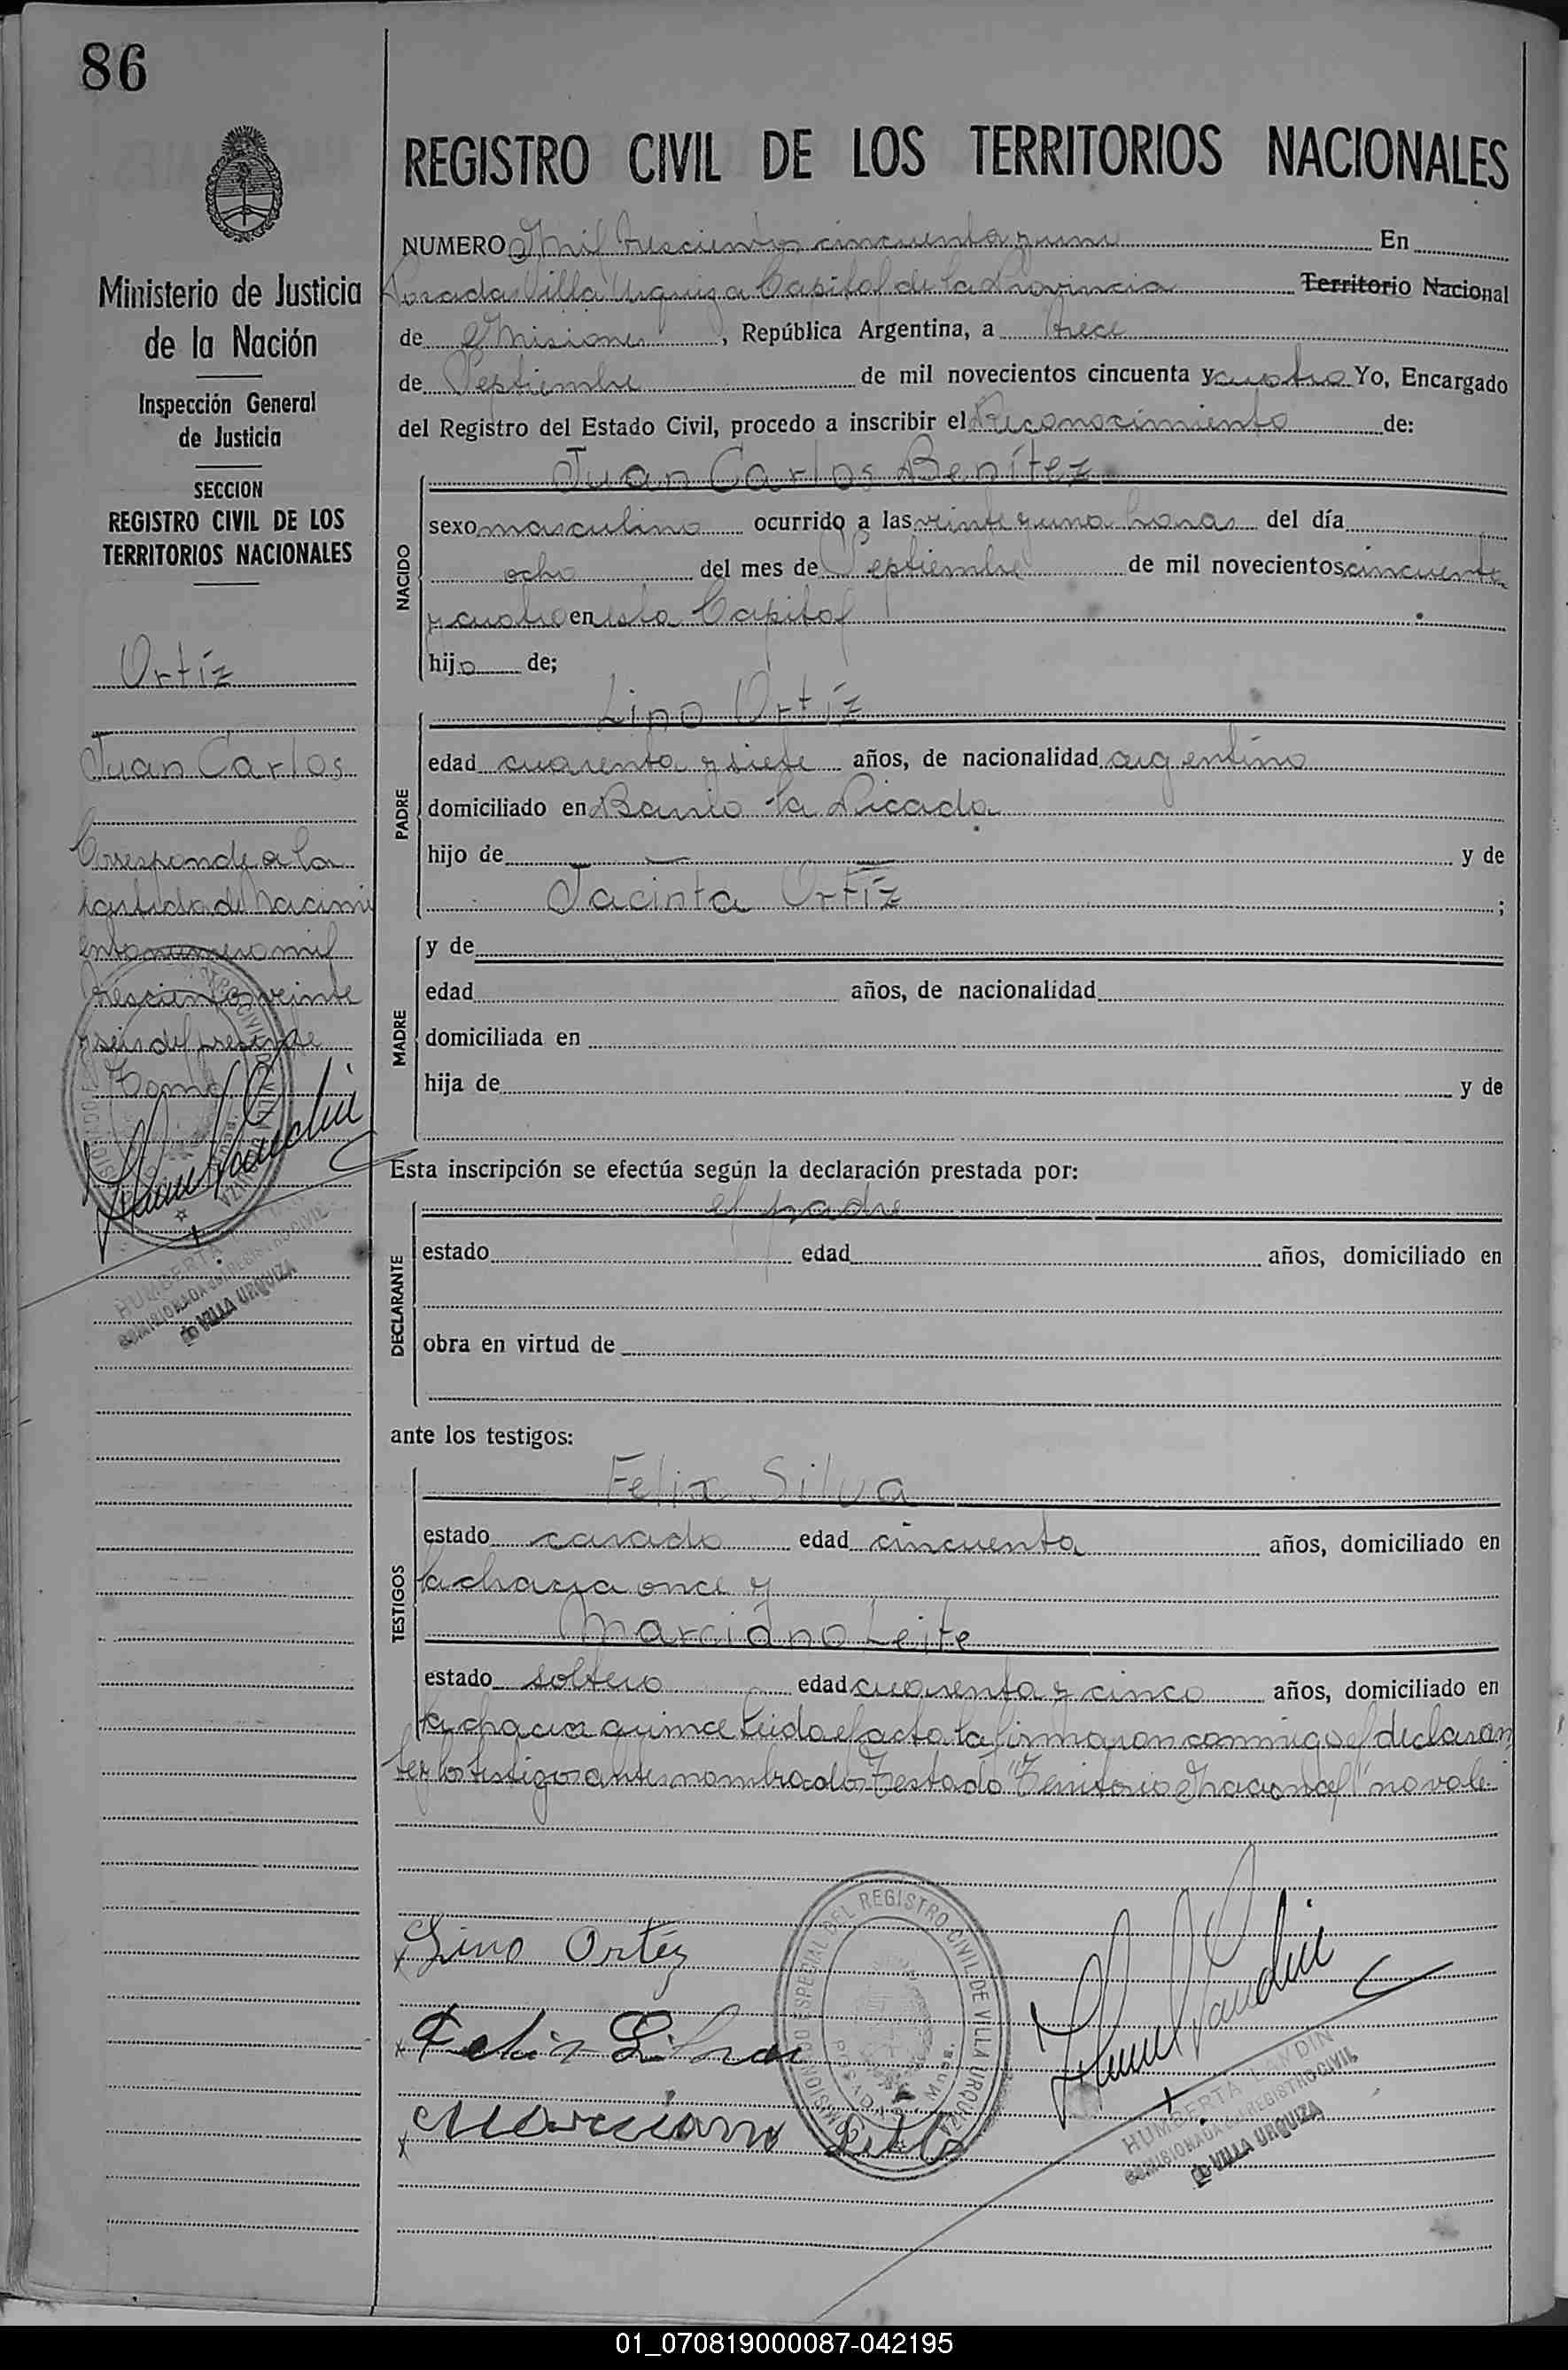 86
REGISTRO CIVIL DE LOS TERRITORIOS NACIONALES
Ministerio de Justicia
de la Nación
Inspección General
de Justicia
SECCION
REGISTRO CIVIL DE LOS
TERRITORIOS NACIONALES
Ortíz
Juan Carlos
Corresponde a la
partida de Nacimi
ento numero mil
trescientos veinte
y seis del presente
Tomo
HUMBERTA
COMISIONADA DEL REGISTRO CIVIL
DE VILLA URQUIZA
NUMERO Mil trescientos cincuenta y uno En
Posadas Villa Urquiza Capital de la Provincia Territorio Nacional
de Misiones, República Argentina, a trece
de Septiembre de mil novecientos cincuenta y cuatro Yo, Encargado
del Registro del Estado Civil, procedo a inscribir el Reconocimiento de:
NACIDO
Juan Carlos Benítez
sexo masculino ocurrido a las veinte y una horas del día
ocho del mes de Septiembre de mil novecientos cincuenta
y cuatro en esta Capital
hijo de;
PADRE
Lino Ortíz
edad cuarenta y siete años, de nacionalidad argentino
domiciliado en Barrio la Picada
hijo de — — y de
Jacinta Ortíz ;
MADRE
y de
edad años, de nacionalidad
domiciliada en
hija de y de
Esta inscripción se efectúa según la declaración prestada por:
DECLARANTE
el padre
estado edad años, domiciliado en
obra en virtud de
ante los testigos:
TESTIGOS
Felix Silva
estado casado edad cincuenta años, domiciliado en
la chacra once y
Marciano Leite
estado soltero edad cuarenta y cinco años, domiciliado en
la chacra quince Leida el acta la firmaron conmigo el declaran
te y los testigos antes nombrados Testado "Territorio Nacional" no vale.
x Lino Ortíz
x Felix Silva
x Marciano Leite
COMISIONADO ESPECIAL DEL REGISTRO CIVIL DE VILLA URQUIZA
POSADAS Mnes.
HUMBERTA LANDINI
COMISIONADA DEL REGISTRO CIVIL
DE VILLA URQUIZA
01_070819000087-042195